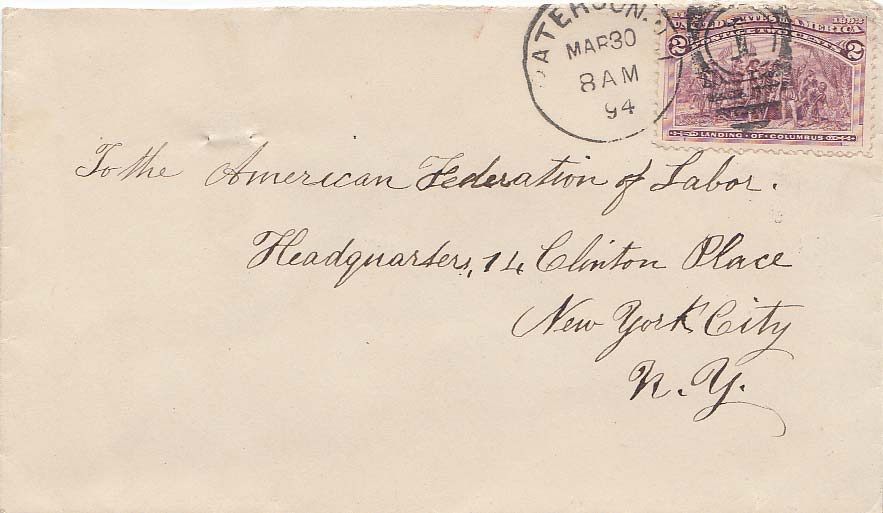 PATERSON. N.J.
MAR 30
8 AM
94
1
UNITED STATES OF AMERICA 1892
2 POSTAGE TWO CENTS 2
LANDING · OF · COLUMBUS
To the American Federation of Labor.
Headquarters, 14 Clinton Place
New York City
N. Y.